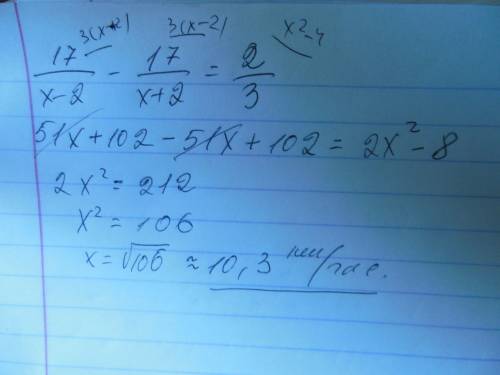 3(x+2) 3(x-2) x²-4
17/(x-2) - 17/(x+2) = 2/3
51x+102-51x+102=2x²-8
2x²=212
x²=106
x=√106 ≈10,3 км/час.